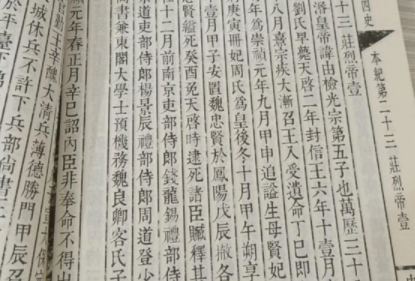 四史
本紀第二十三 莊烈帝壹
十三 莊烈帝壹
愍皇帝諱由檢光宗第五子也萬歷三十
劉氏早薨天啓二年封信王六年十一月
八月熹宗疾大漸召王入受遺命丁巳即
年為崇禎元年九月甲申追謚生母賢妃
庚寅冊妃周氏為皇后冬十月甲午朔享
壹月甲子安置魏忠賢於鳳陽戊辰撤各
賢縊死癸酉免天啓時逮死諸臣贓釋其
十二月前南京吏部侍郎錢龍錫禮部侍
宗道吏部侍郎楊景辰禮部侍郎周道登少
書兼東閣大學士預機務魏良卿客氏子
元年春正月辛巳詔內臣非奉命不得出
主幸酺大清兵薄德勝門甲辰召
城休兵不許下兵部尚書
於平臺下